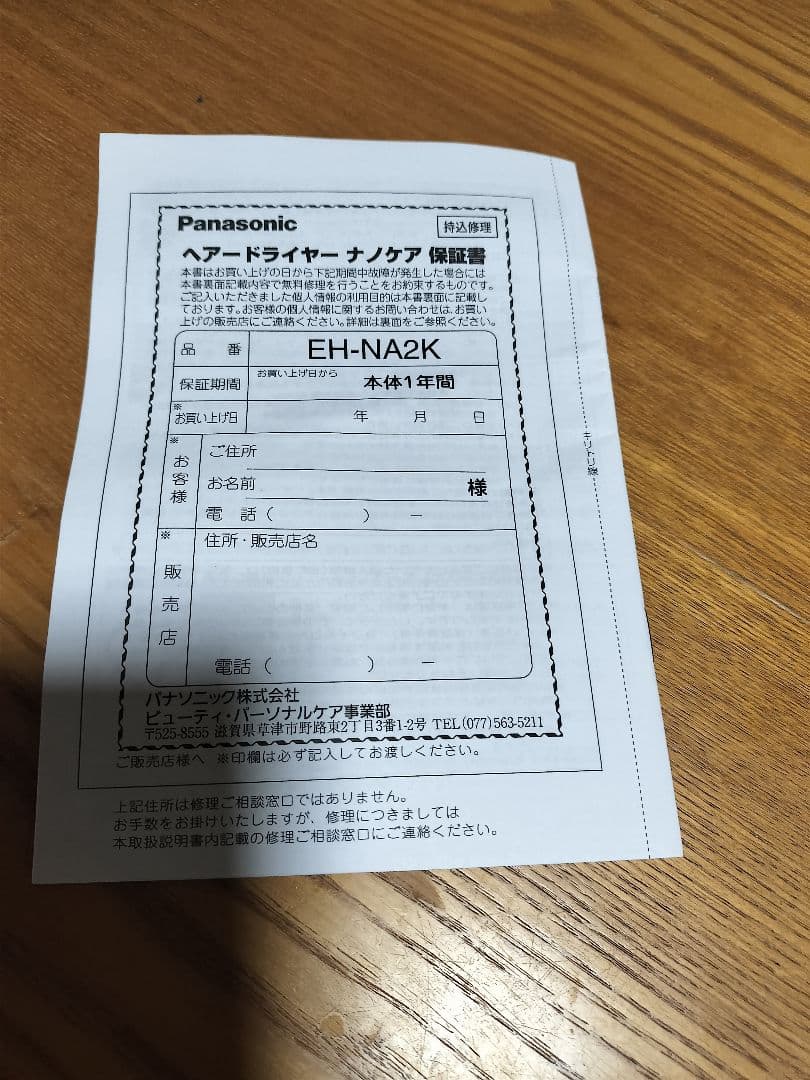 Panasonic
持込修理
ヘアードライヤー ナノケア 保証書
本書はお買い上げの日から下記期間中故障が発生した場合には
本書裏面記載内容で無料修理を行うことをお約束するものです。
ご記入いただきました個人情報の利用目的は本書裏面に記載し
ております。お客様の個人情報に関するお問い合わせは、お買い
上げの販売店にご連絡ください。詳細は裏面をご参照ください。
品 番 EH-NA2K
保証期間 お買い上げ日から 本体1年間
※お買い上げ日 年 月 日
※お客様
ご住所
お名前 様
電 話( ) −
※販売店
住所・販売店名
電話( ) −
キリトリ線
パナソニック株式会社
ビューティ・パーソナルケア事業部
〒525-8555 滋賀県草津市野路東2丁目3番1-2号 TEL(077)563-5211
ご販売店様へ ※印欄は必ず記入してお渡しください。
上記住所は修理ご相談窓口ではありません。
お手数をお掛けいたしますが、修理につきましては
本取扱説明書内記載の修理ご相談窓口にご連絡ください。